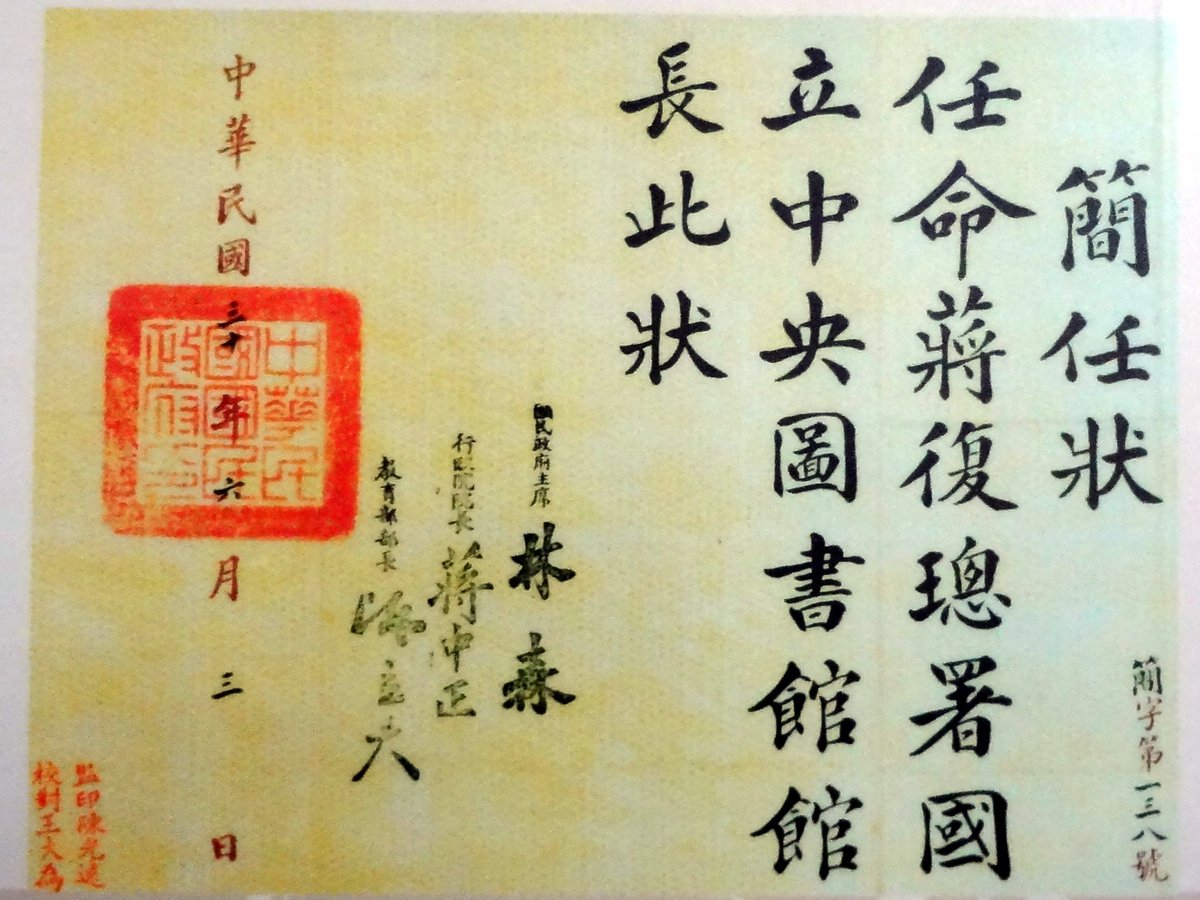 簡字第一三八號
簡任狀
任命蔣復璁署國
立中央圖書館館
長此狀
國民政府主席 林森
行政院院長 蔣中正
教育部部長 陳立夫
中華民國三十年六月三日
中華民
國國民
政府印
監印陳光遠
校對王大為